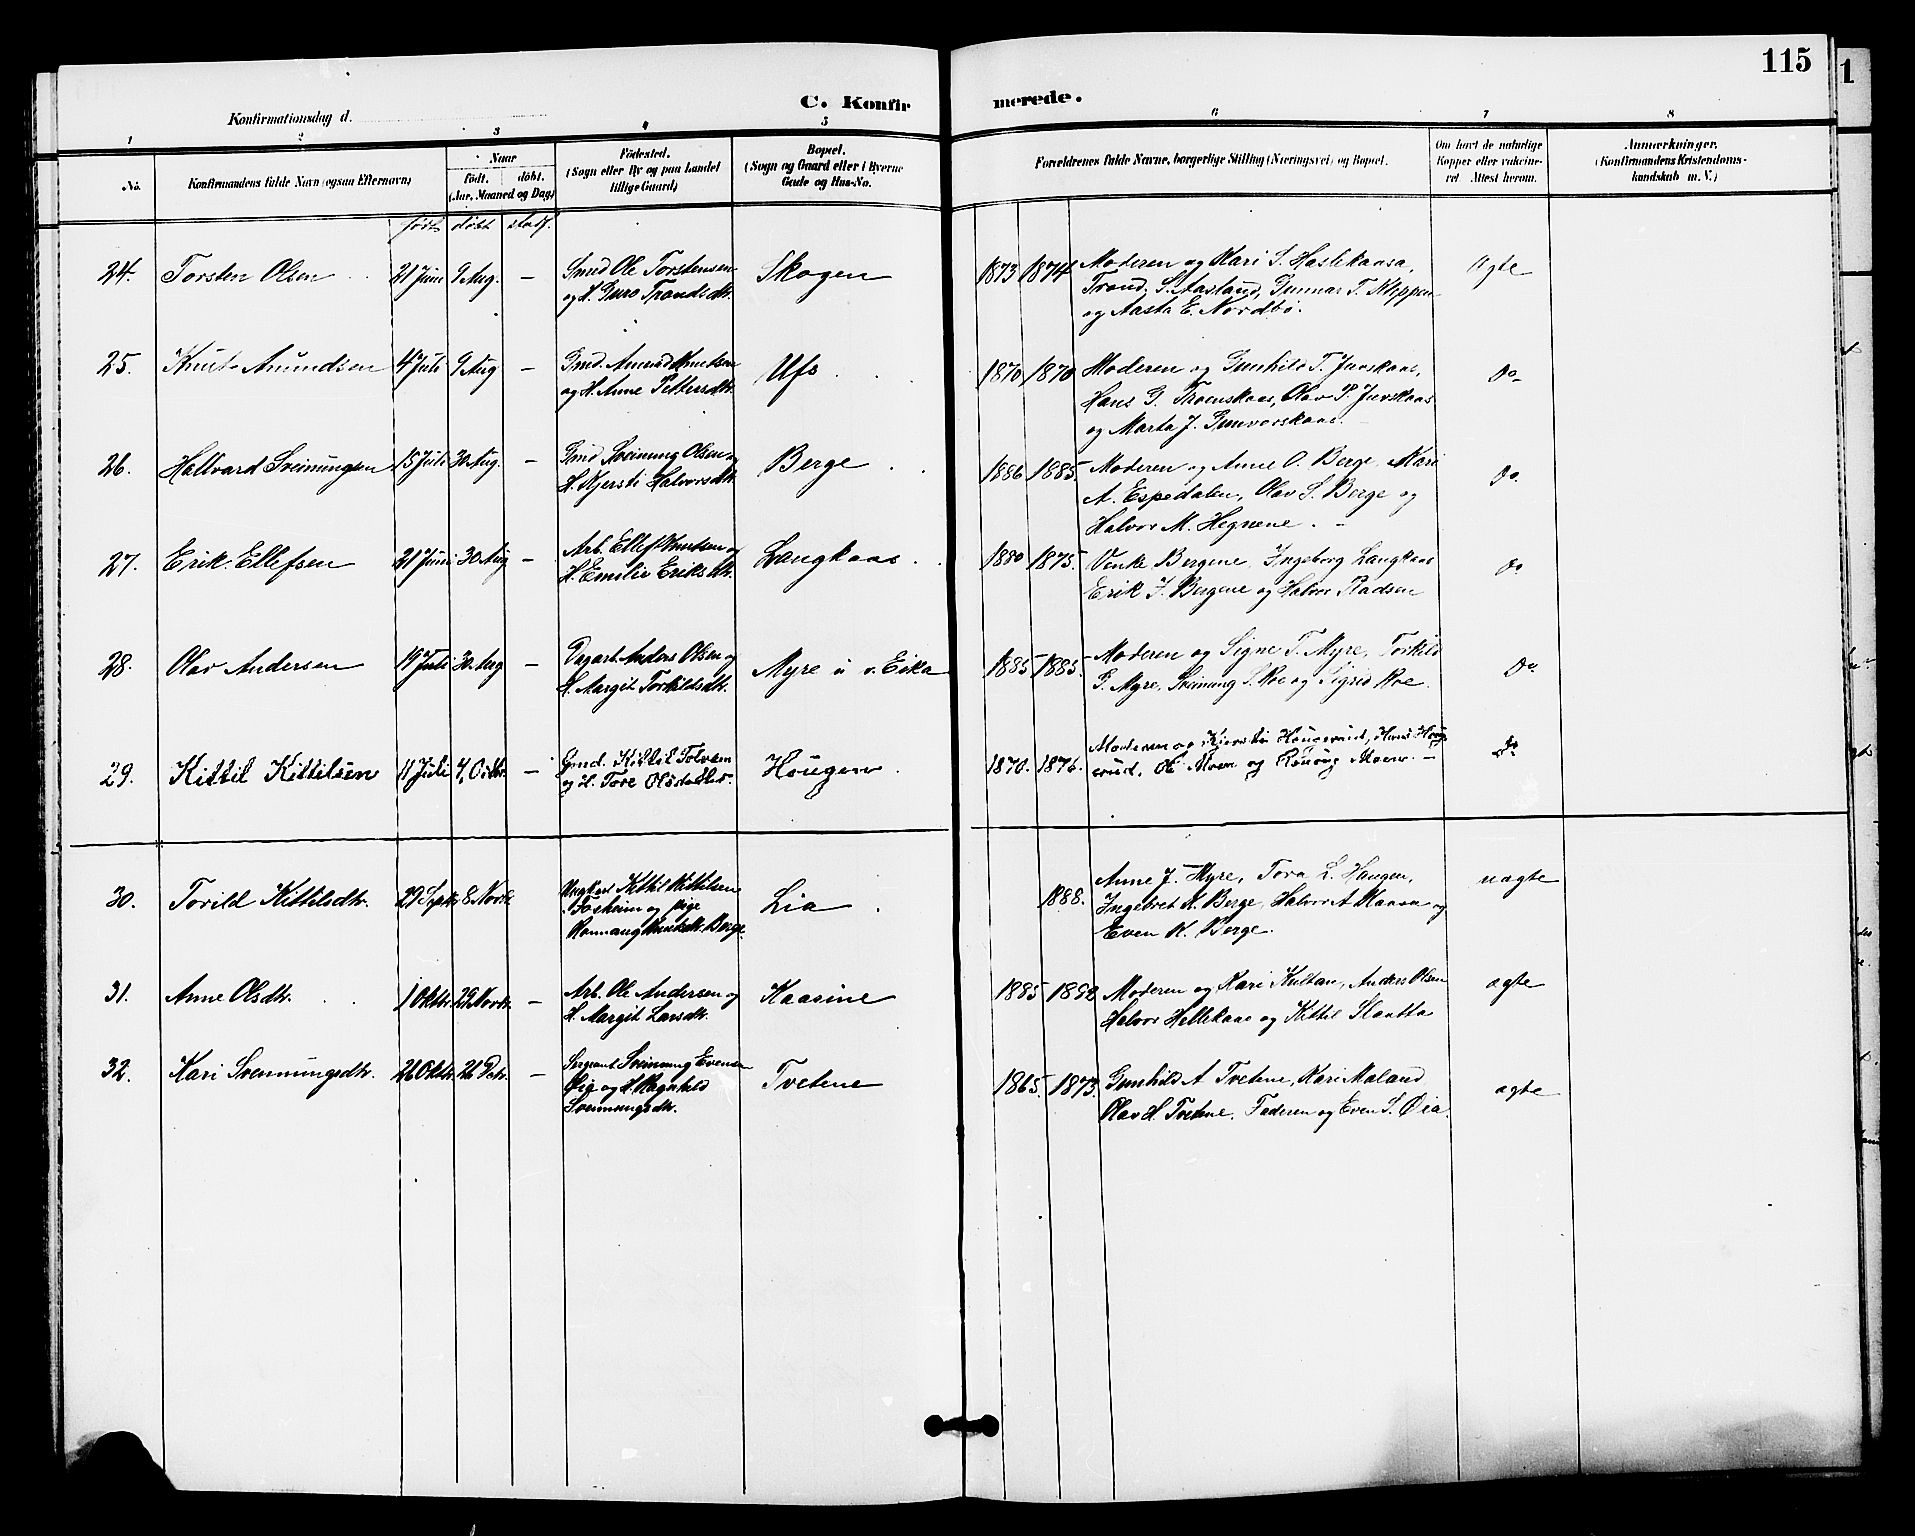 115
1
C. Konfirmerede.
Konfirmationsdag d.
1 2 3 4 5 6 7 8
No.
Konfirmandens fulde Navn (ogsaa Efternavn)
Naar
födt. döbt.
(Aar, Maaned og Dag)
Födested.
(Sogn eller By og paa Landet
tillige Gaard)
Bopæl.
(Sogn og Gaard eller i Byerne
Gade og Hus-No.
Forældrenes fulde Navne, borgerlige Stilling (Næringsvei) og Bopæl.
Om havt de naturlige
Kopper eller vakcine-
ret Attest herom.
Anmærkninger.
(Konfirmandens Kristendoms-
kundskab m. V.)
født døbt stadf.
24. Torsten Olsen 21 Juni 9 Aug. —
Smed Ole Torstensen
og H. Guro Trondsdtr.
Skogen
1873 1874
Moderen og Kari S. Haslekaasa,
Trond S. Aasland, Gunnar T. Klippen
og Aasta E. Nordbø.
Ægte
25. Knut Amundsen 4 Juli 9 Aug —
Gmd. Amund Knutsen
og H. Anne Pettersdtr.
Ufs
1870 1870
Moderen og Gunhild T. Juvskaas,
Hans G. Troenskaas, Olav P. Juvskaas
og Marta J. Gunvorskaas.
Do
26. Hallvard Sveinungsen 15 Juli 30 Aug. —
Gmd Sveinung Olsen og
H. Kjersti Halvorsdtr.
Berge
1886 1885
Moderen og Anne O. Berge, Kari
A. Espedalen, Olav S. Berge og
Halvor M. Hegnene. —
Do
27. Erik Ellefsen 21 Juni 30 Aug —
Arb. Ellef Knutsen og
H. Emilie Eriksdtr.
Langkaas
1880 1875.
Vinke Bergene, Ingeborg Langkaas
Erik J. Bergene og Halvor Kladsen
Do
28. Olav Andersen 19 Juli 30 Aug —
Dagarb. Anders Olsen og
H. Margit Torkildsdtr.
Myre u. v. Eika
1885 1885.
Moderen og Signe T. Myre, Torkild
G. Myre, Sveinung S. Roe og Sigrid Roe.
Do
29. Kittil Kittilsen 11 Juli 4 Octbr. —
Gmd. Kittil Tolvsen
og H. Tore Olsdatter.
Haugen
1870. 1876.
Moderen og Kjersti Haugerud, Hans Haug-
erud, Ole Moen og Rønoug Moen. —
Do
30. Torild Kittilsdtr. 29 Septbr 8 Novbr.
Ungkarl Kittil Kittilsen
Fosheim og pige
Rønnaug Knutsdtr. Berge.
Lia
1888.
Anne J. Myre, Tora L. Haugen,
Ingebret K. Berge, Halvor A Kaasa og
Even K. Berge.
uægte
31. Anne Olsdtr. 1 Oktbr. 22 Novbr. —
Arb. Ole Andersen og
H. Margit Larsdtr.
Kaasine
1885 1892
Moderen og Kari Kultan, Anders Olsen
Halvor Hellekaas og Kittil Slaatta
ægte
32. Kari Sveinungsdtr. 26 Oktbr. 26 Dcbr. —
Sergeant Sveinung Evensen
Øia og H. Ragnhild
Sveinungsdtr.
Tvetene
1865. 1873.
Gunhild A Tvetene, Kari Moland
Olav H. Tvetene, Faderen og Even S. Øia.
ægte